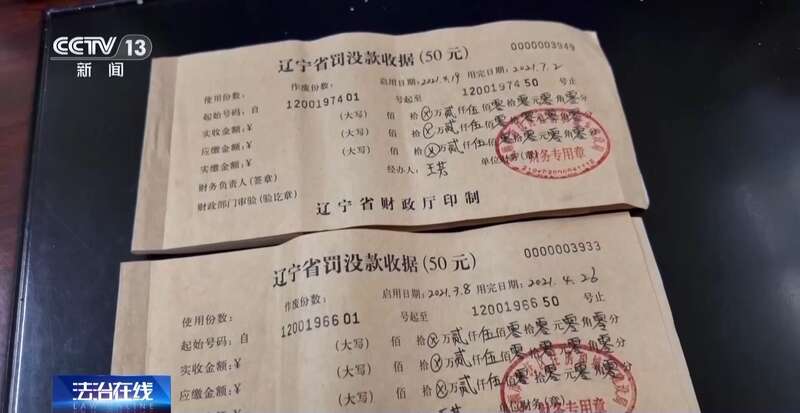 CCTV 13
新闻
辽宁省罚没款收据(50元)
0000003949
使用份数：
作废份数：
启用日期：2021.4.19 用完日期：2021.7.2
起始号码：自 1200197401 号起至 1200197450 号止
实收金额：￥ (大写) 佰 拾 ⊗万贰仟伍佰零拾零元零角零分
应缴金额：￥ (大写) 佰 拾 ⊗万贰仟伍佰零拾零元零角零分
实缴金额：￥ (大写) 佰 拾 ⊗万贰仟伍佰零拾零元零角零分
财务负责人(签章) 经办人： 单位财务(章)
财务专用章
财政部门审验(验讫章)
辽宁省财政厅印制
辽宁省罚没款收据(50元)
0000003933
使用份数：
作废份数：
启用日期：2021.3.8 用完日期：2021.4.26
起始号码：自 1200196601 号起至 1200196650 号止
实收金额：￥ (大写) 佰 拾 ⊗万贰仟伍佰零拾零元零角零分
应缴金额：￥ (大写) 佰 拾 ⊗万贰仟伍佰零拾零元零角零分
(大写) 佰 拾 ⊗万贰仟伍佰零拾零元零角零分
法治在线